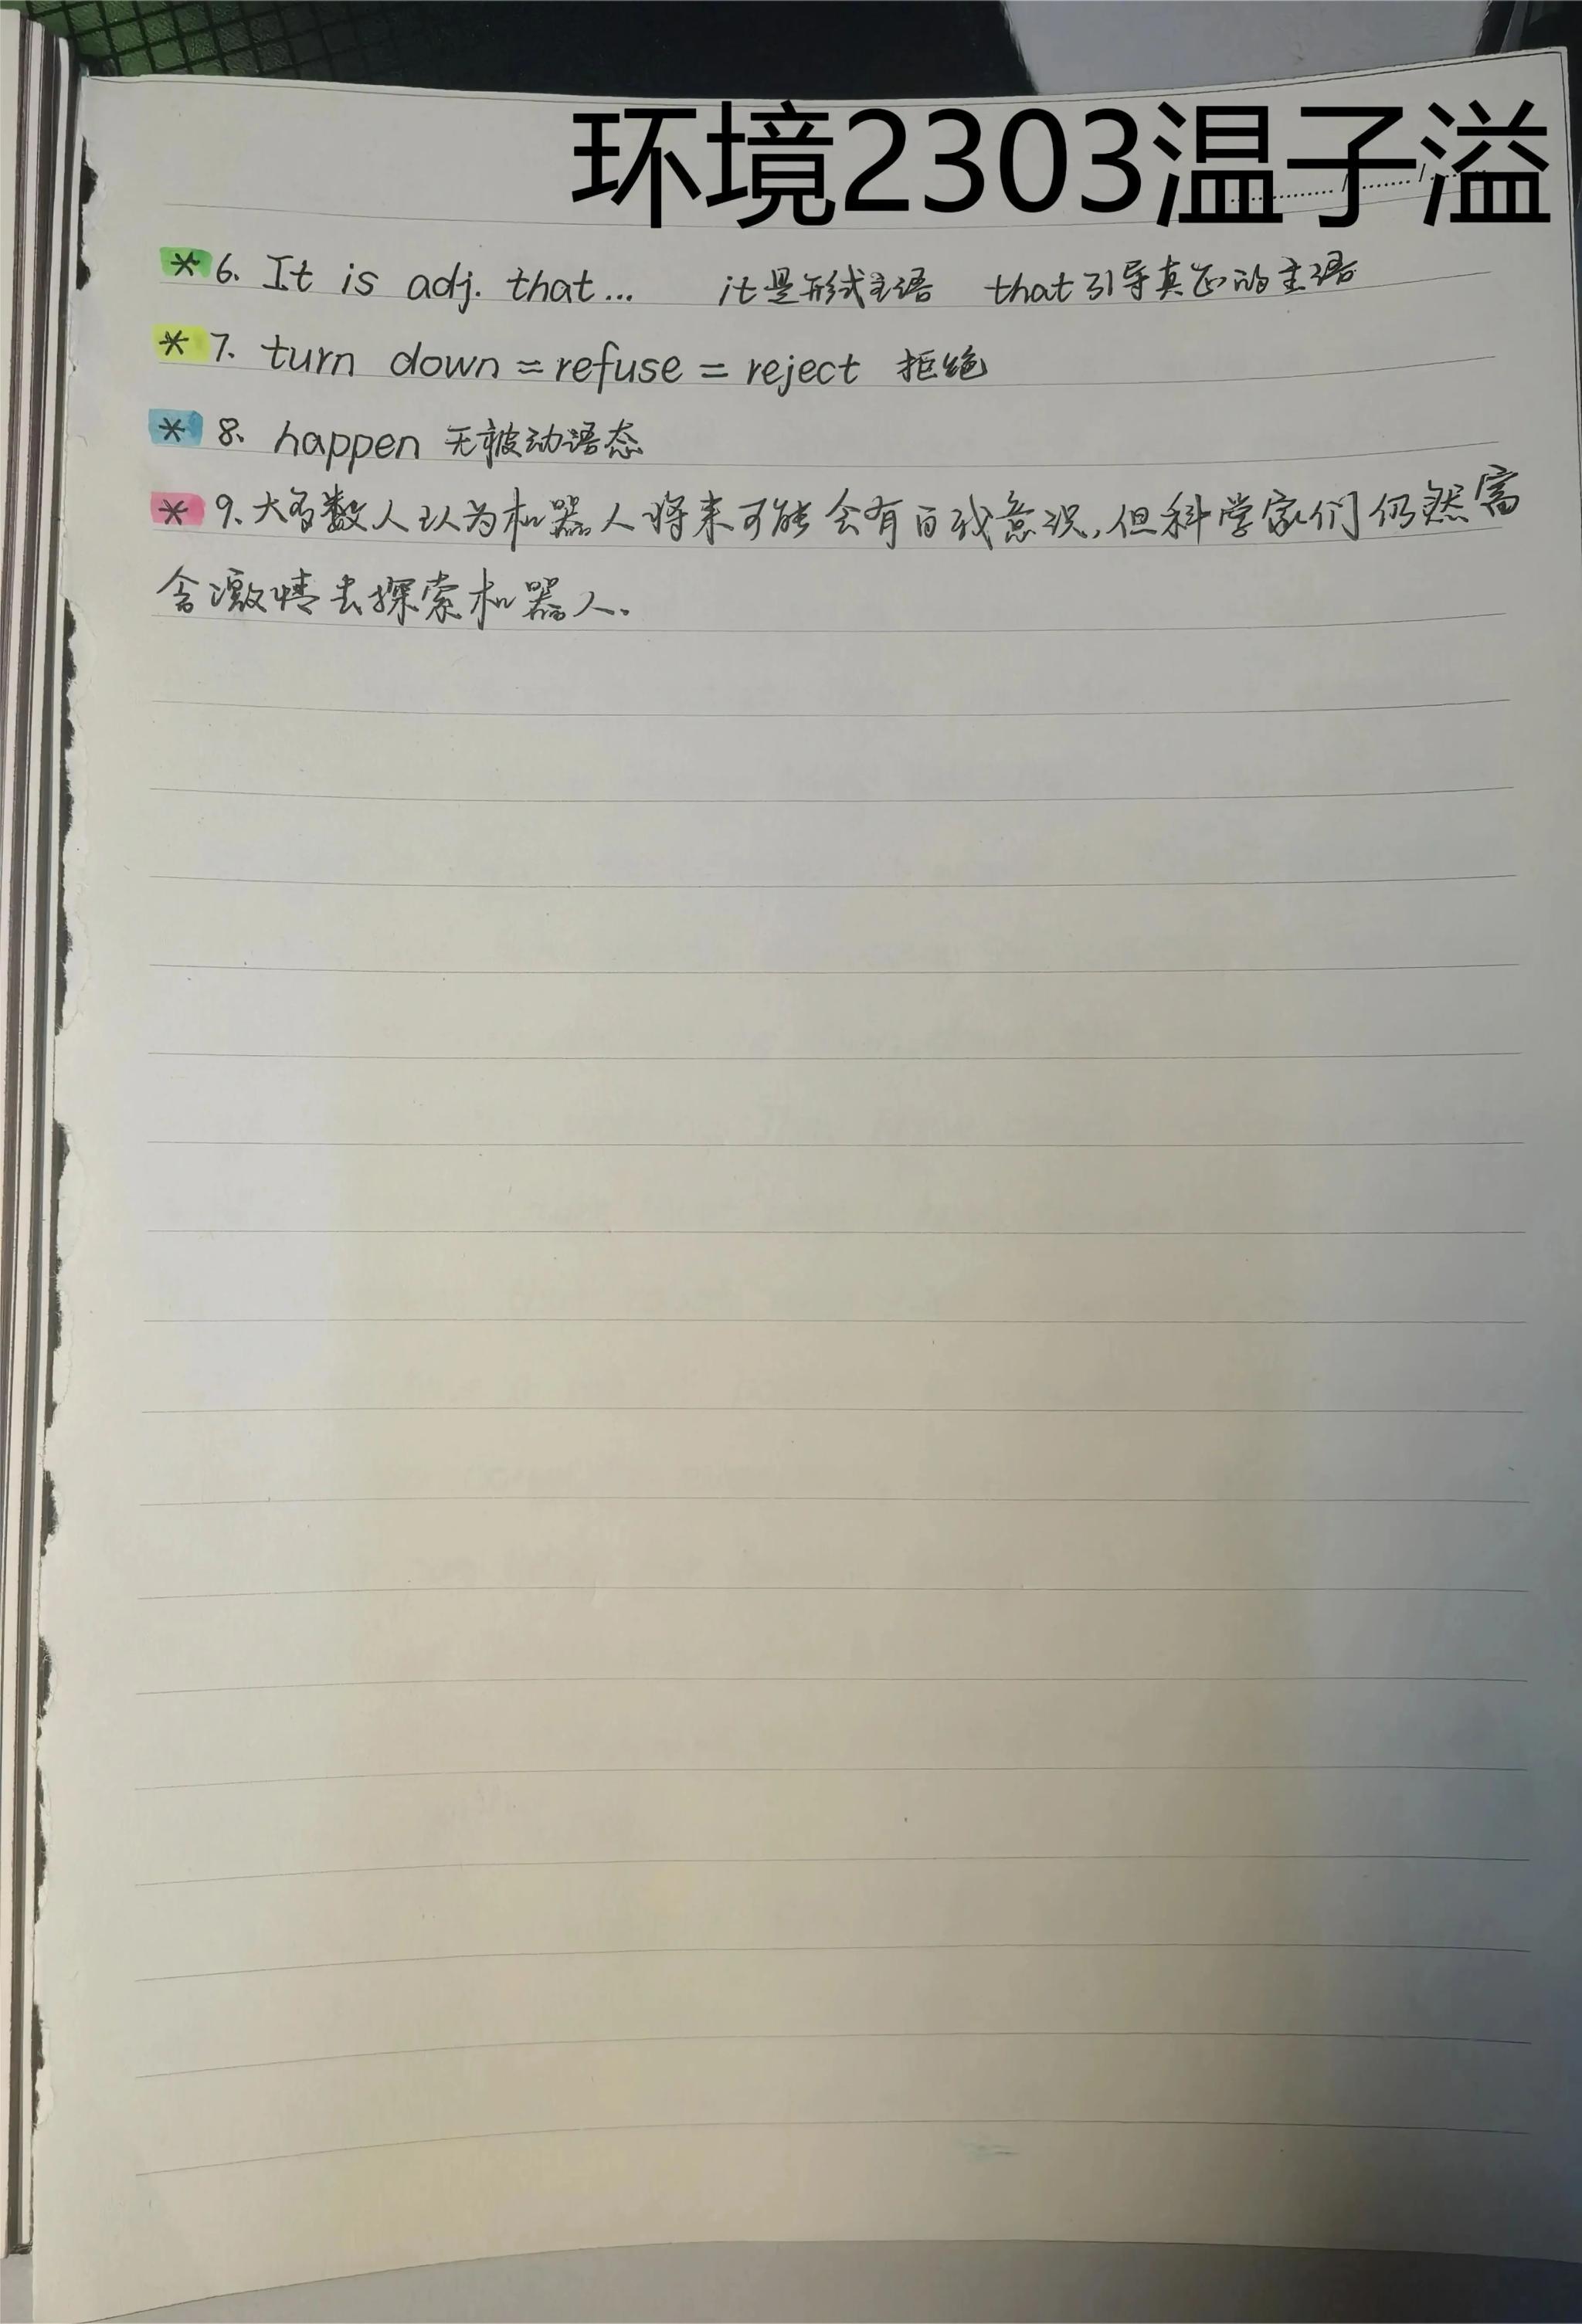 环境2303温子溢
* 6、It is adj. that... it是形式主语 that引导真正的主语
* 7、turn down = refuse = reject 拒绝
* 8、happen 无被动语态
* 9、大多数人认为机器人将来可能会有自我意识,但科学家们仍然富
含激情去探索机器人.